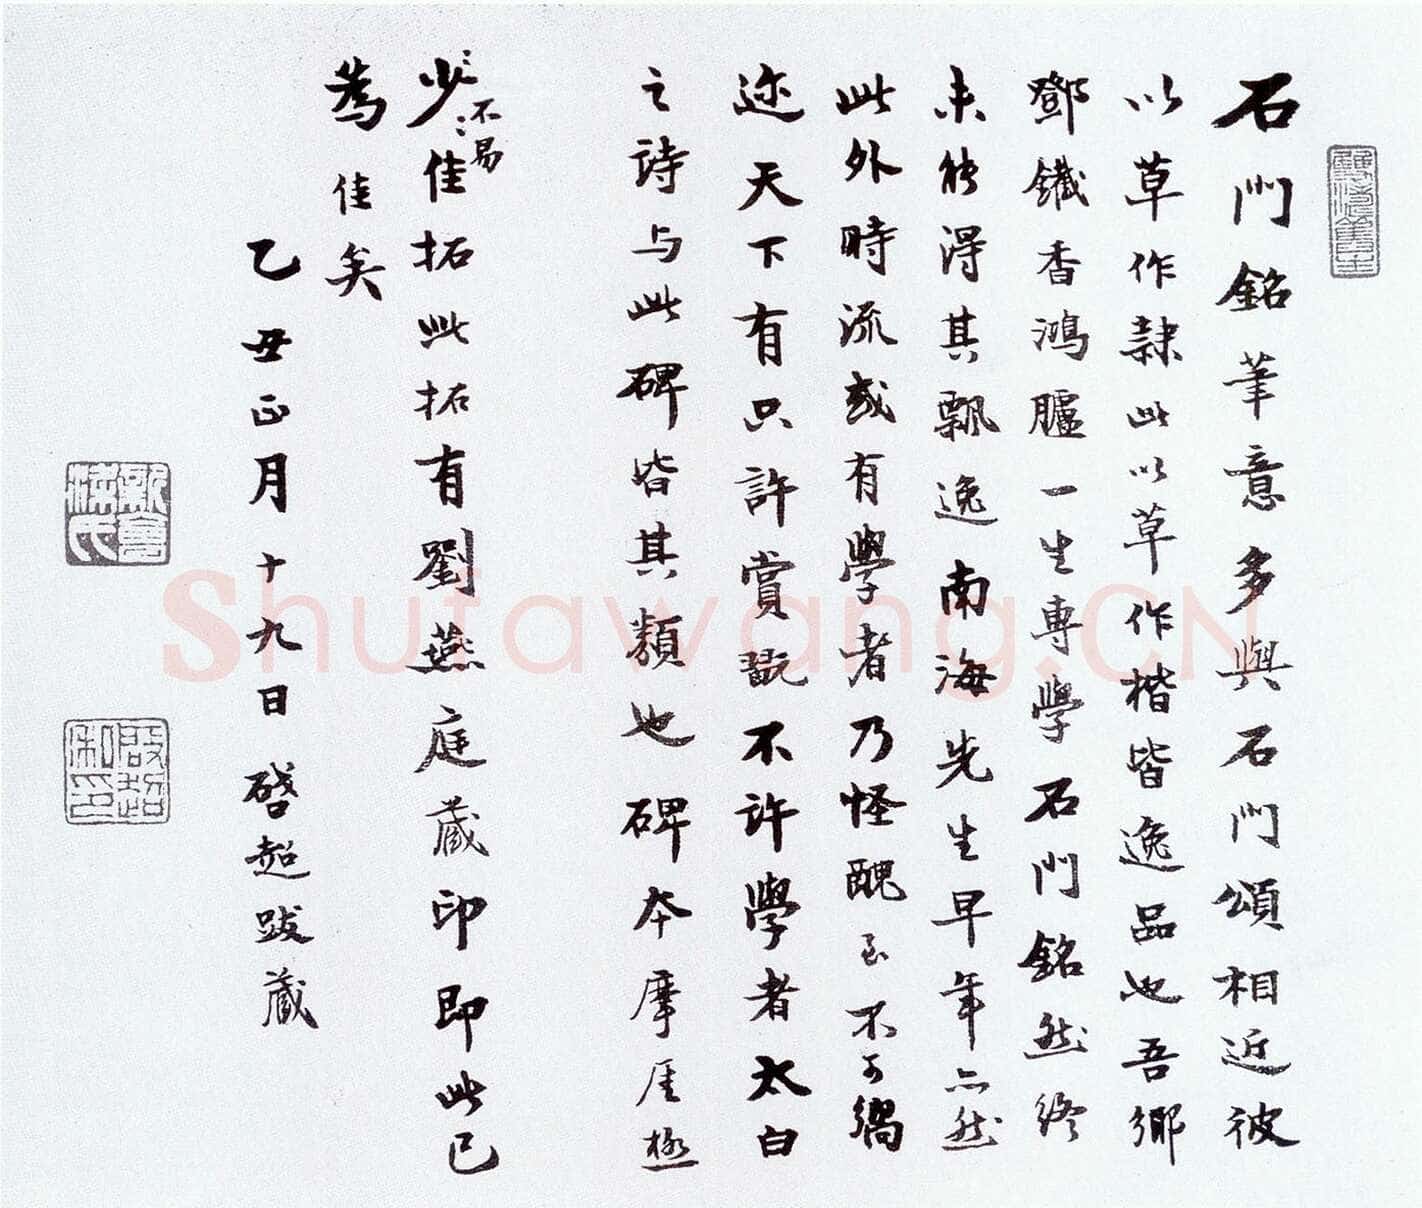 雙濤書屋
石門銘筆意多與石門頌相近彼
以草作隸此以草作楷皆逸品也吾鄉
鄧鐵香鴻臚一生專學石門銘然終
未能得其飄逸南海先生早年亦然
此外時流或有學者乃怪醜至不可
迩天下有只許賞翫不許學者太白
之詩与此碑皆其類也碑本摩厓極
少佳拓此拓有劉燕庭藏印即此已
不易
為佳矣
乙丑正月十九日啓超跋藏
新會
梁氏
啟超
私印
Shufawang.CN